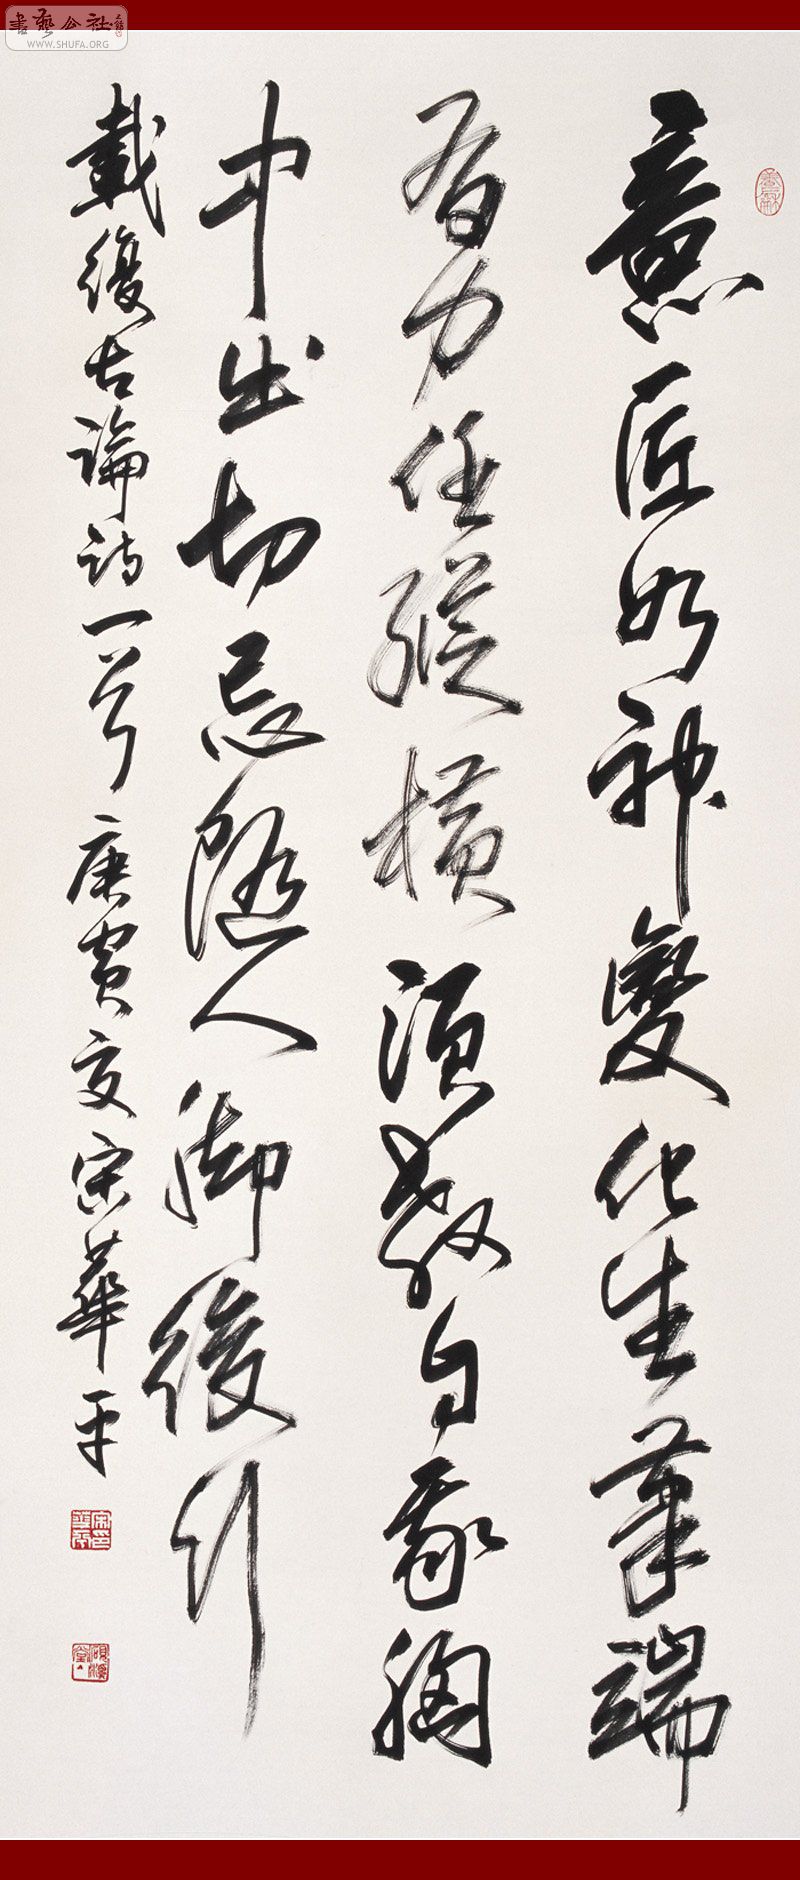 書藝公社
WWW.SHUFA.ORG
意匠如神變化生筆端
有力任縱橫須教自我胸
中出切忌隨人脚後行
戴復古論詩一首 庚寅夏宋華平
宋印華平